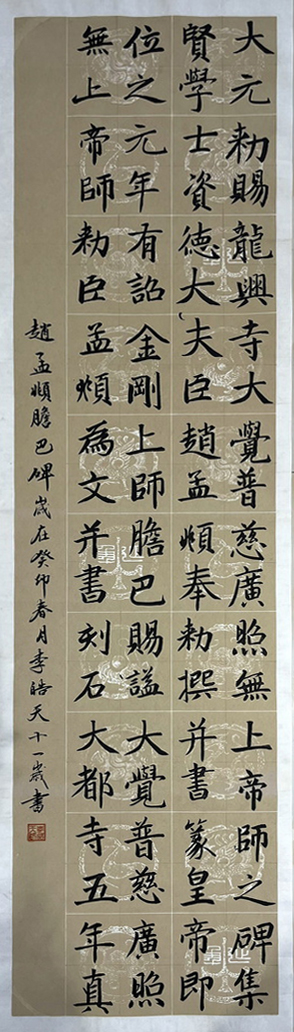 大元勅賜龍興寺大覺普慈廣照無上帝師之碑集
賢學士資德大夫臣趙孟頫奉勅撰并書篆皇帝即
位之元年有詔金剛上師膽巴賜謚大覺普慈廣照
無上帝師勅臣孟頫為文并書刻石大都寺五年真
趙孟頫膽巴碑歲在癸卯春月李皓天十一歲書